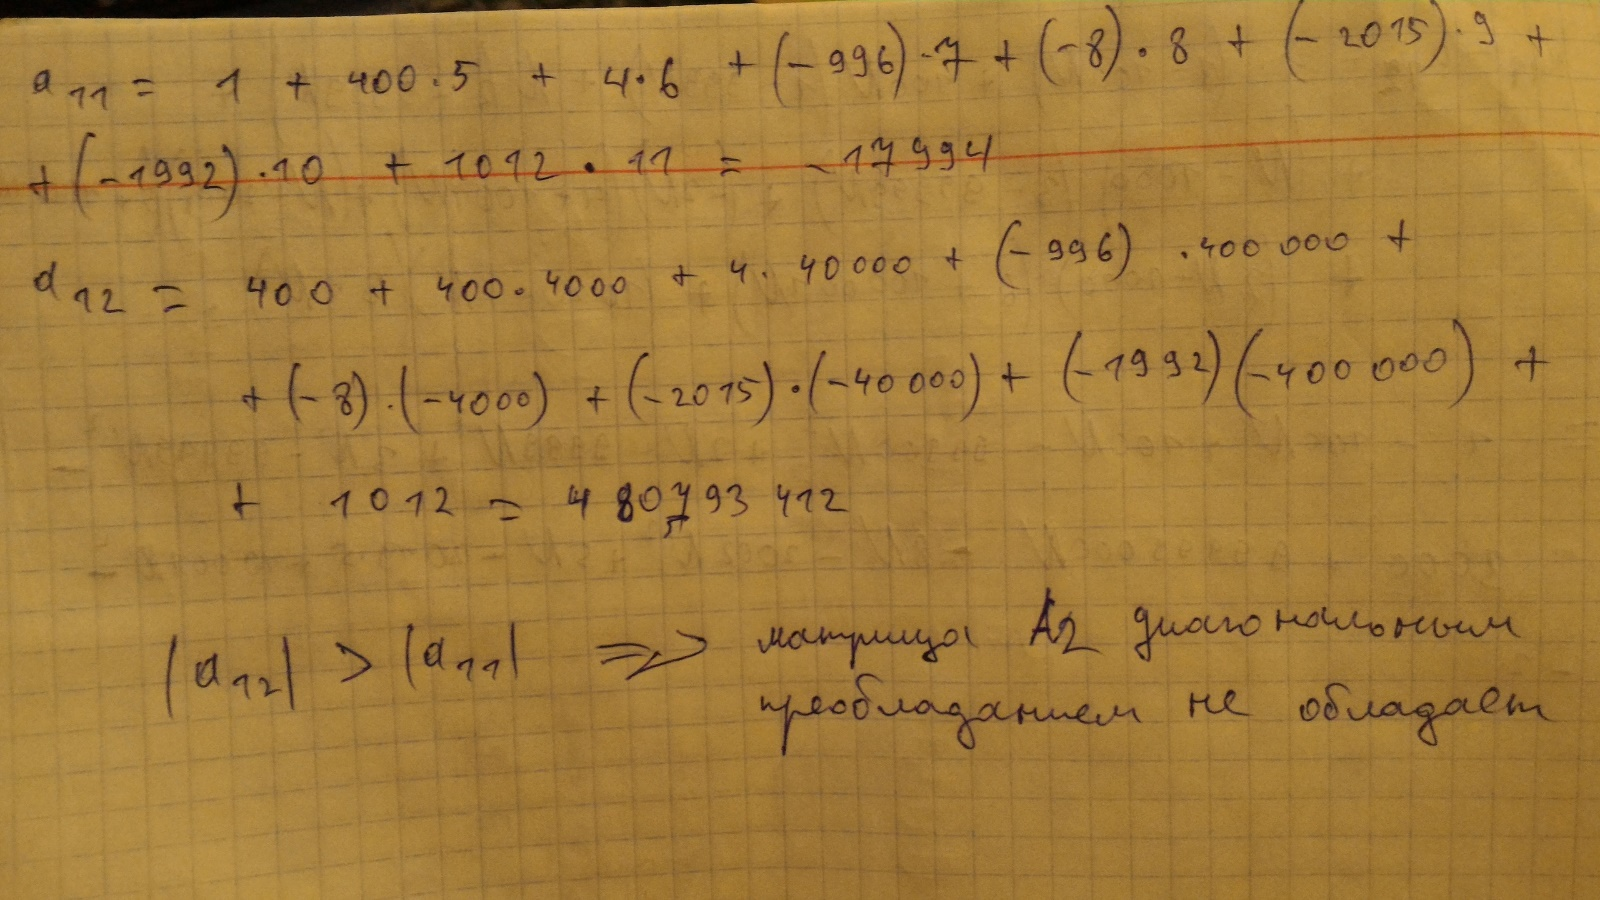 a₁₁ = 1 + 400·5 + 4·6 + (-996)·7 + (-8)·8 + (-2015)·9 +
+ (-1992)·10 + 1012·11 = -17994
a₁₂ = 400 + 400·4000 + 4·40000 + (-996)·400 000 +
+ (-8)·(-4000) + (-2015)·(-40 000) + (-1992)(-400 000) +
+ 1012 = 480793 412
|a₁₂| > |a₁₁| ⇒ матрица A₂ диагональным
преобладанием не обладает